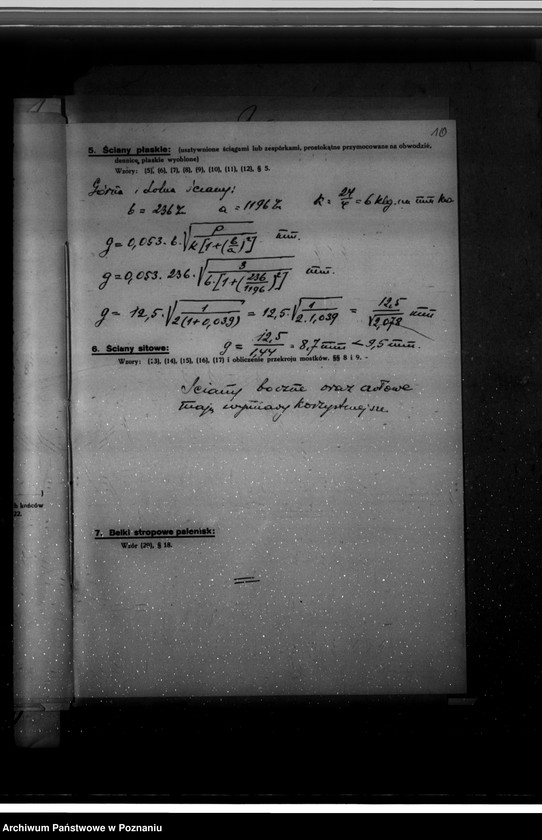 10
5. Ściany płaskie: (usztywnione ściągami lub zespórkami, prostokątne przymocowane na obwodzie,
dennice, płaskie wyoblone)
Wzory: (5), (6), (7), (8), (9), (10), (11), (12), § 5.
Górna i dolna ściany:
b = 236 a = 1196 k = 24/4 = 6 klg. na mm kw.
g = 0,053. b. √p/k[1+(b/a)²] mm.
g = 0,053. 236. √3/6.[1+(236/1196)²] mm.
g = 12,5. √1/2(1+0,039) = 12,5. √1/2.1,039 = 12,5/√2,078 mm
g = 12,5/1,44 = 8,7 mm < 9,5 mm.
6. Ściany sitowe:
Wzory: (13), (14), (15), (16), (17) i obliczenie przekroju mostków. §§ 8 i 9.
Ściany boczne oraz
mają wymiary korzystniejsze.
h króćów
22.
7. Belki stropowe palenisk:
Wzór (20), § 18.
Archiwum Państwowe w Poznaniu